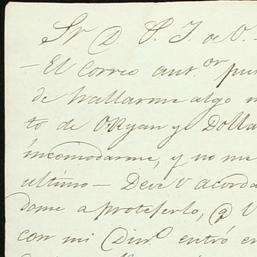 Sr D. P. J. de O.—
—El Correo ant.or pu
de hallarme algo
to de ORyan y Dolla
incomodarme, y no me
ultimo — Deve V acorda
dome a protestarlo, @ V
con mi Din.o entró e